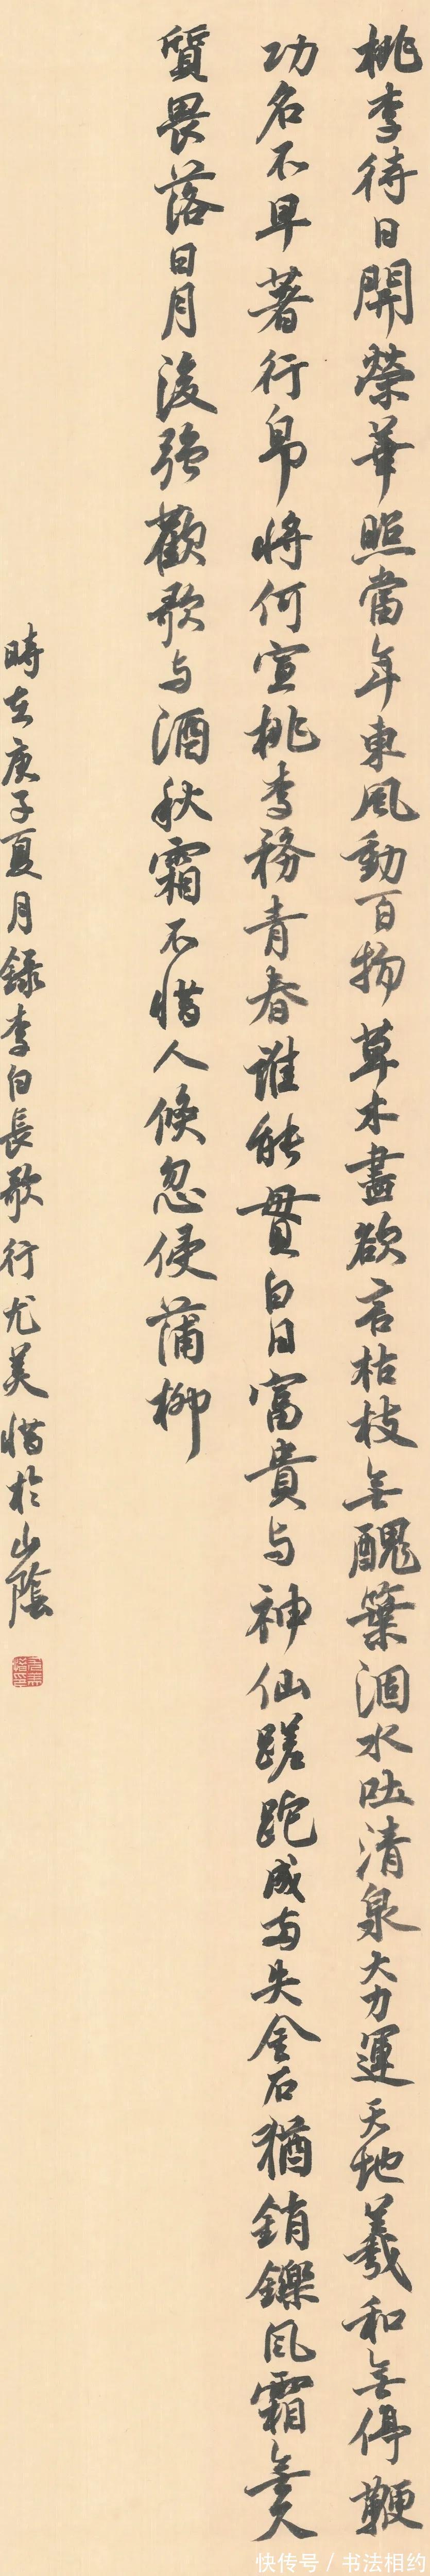 桃李待日開榮華照當年東風動百物草木盡欲言枯枝無醜葉涸水吐清泉大力運天地羲和無停鞭
功名不早著行帛將何宣桃李務青春誰能貫白日富貴与神仙蹉跎成兩失金石猶銷鑠風霜無久
質畏落日月後強歡歌与酒秋霜不惜人倏忽侵蒲柳
時在庚子夏月錄李白長歌行尤美惜於山陰
快传号 / 书法相约